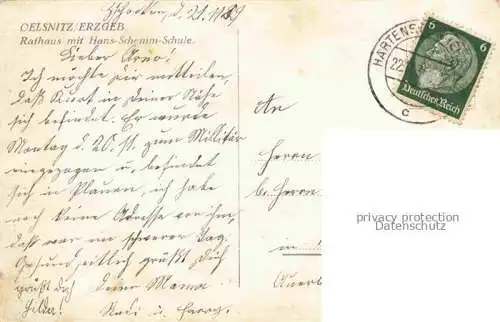 OELSNITZ ERZGEB.
Rathaus mit Hans-Schemm-Schule.
Zschocken, d. 21.11.39
Lieber Arno!
Ich möchte dir mitteilen,
daß Kurt in deiner Nähe
sich befindet. Er wurde
Montag d. 20. 11. zum Militär
eingezogen u. befindet
sich in Plauen, ich habe
noch keine Adresse von ihm,
das war ein schwerer Tag.
grüßt Dich
grüßt dich deine Mama
Hilda! Rudi u. Harry.
An
Herrn
b. Herrn
in
Auerb
HARTENS
22.
c
6 6
Deutsches Reich
privacy protection
Datenschutz